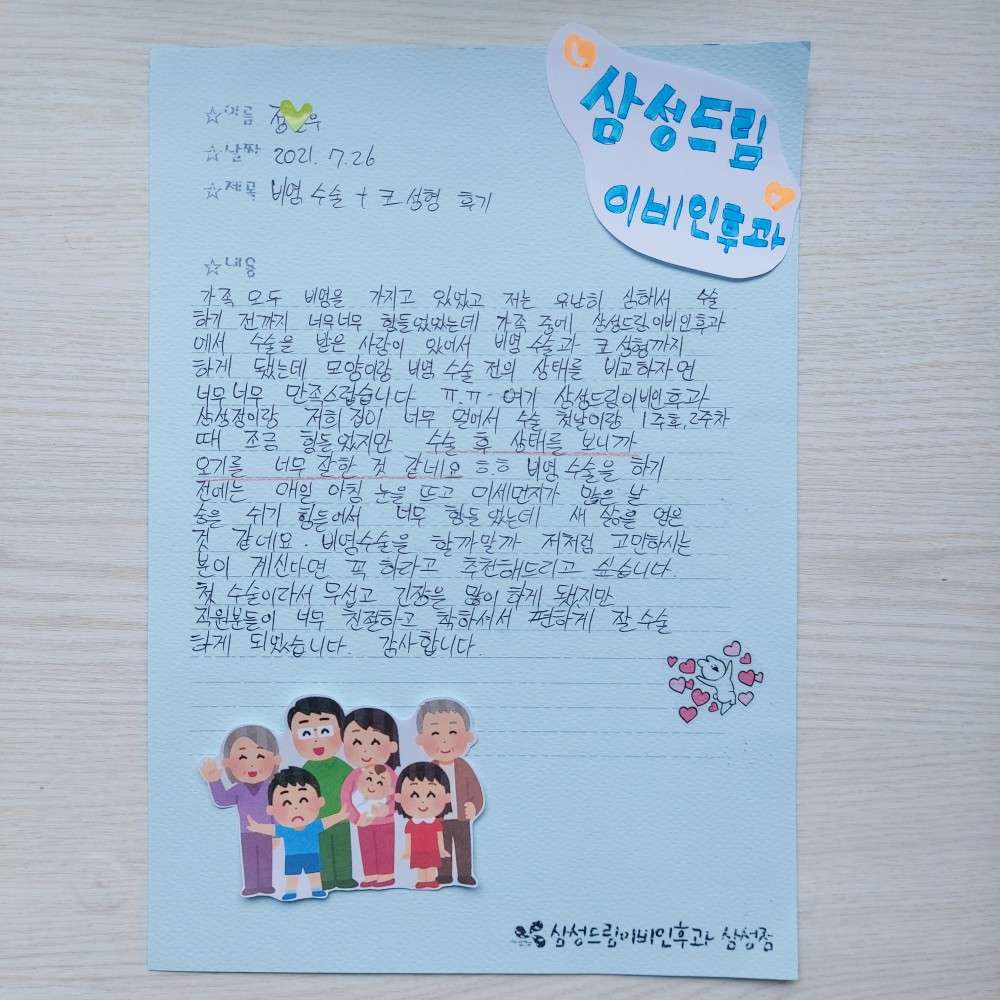 삼성드림
이비인후과
☆이름 정 우
☆날짜 2021. 7. 26
☆제목 비염 수술 + 코 성형 후기
☆내용
가족 모두 비염을 가지고 있었고 저는 유난히 심해서 수술
하기 전까지 너무너무 힘들었었는데 가족 중에 삼성드림이비인후과
에서 수술을 받은 사람이 있어서 비염 수술과 코 성형까지
하게 됐는데 모양이랑 비염 수술 전의 상태를 비교하자면
너무너무 만족스럽습니다 ㅠㅠ 여기 삼성드림이비인후과
삼성점이랑 저희 집이 너무 멀어서 수술 첫날이랑 1주후, 2주차
때 조금 힘들었지만 수술 후 상태를 보니까
오기를 너무 잘한 것 같네요 ㅎㅎ 비염 수술을 하기
전에는 매일 아침 눈을 뜨고 미세먼지가 많은 날
숨을 쉬기 힘들어서 너무 힘들었는데 새 삶을 얻은
것 같네요. 비염수술을 할까말까 저처럼 고민하시는
분이 계신다면 꼭 하라고 추천해드리고 싶습니다.
첫 수술이라서 무섭고 긴장을 많이 하게 됐지만
직원분들이 너무 친절하고 착하셔서 편하게 잘 수술
하게 되었습니다. 감사합니다.
삼성드림이비인후과 삼성점